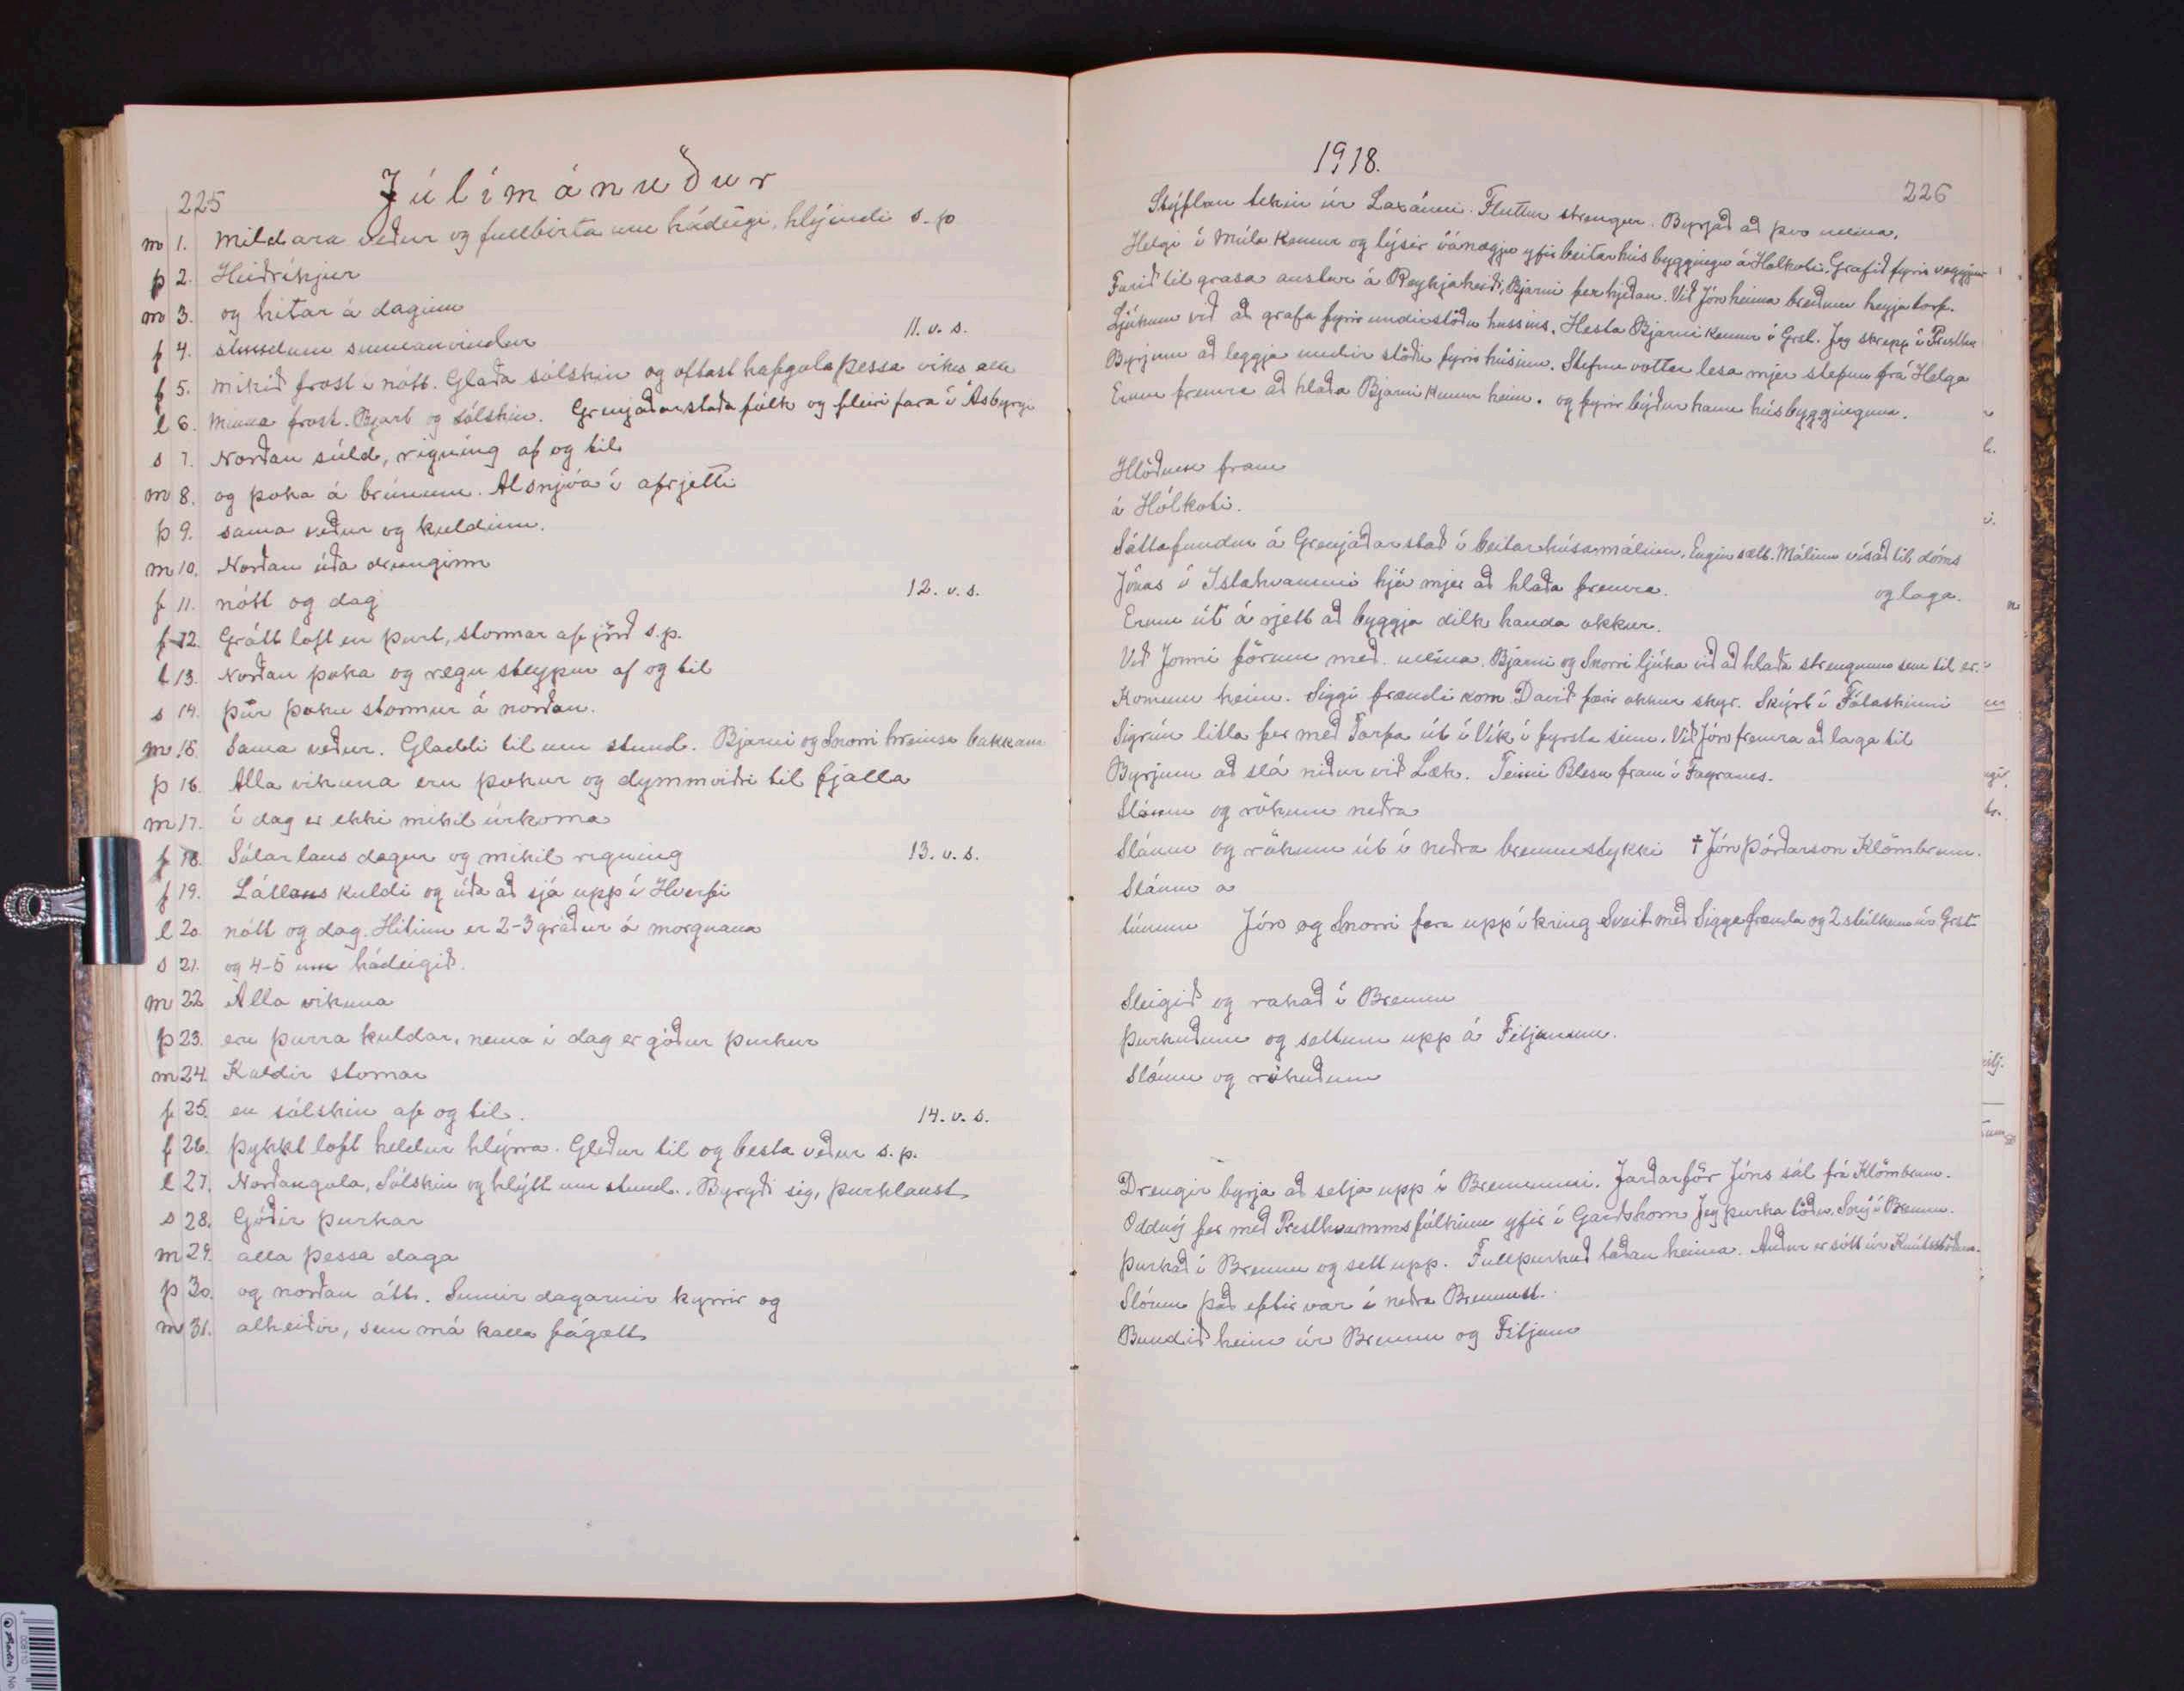 225
Júlímánuður
m 1. Mildara veður og fullbirta um hádegi, hlýindi s. p
þ 2. Heiðríkjur
m 3. og hitar á daginn
f 4. stundum sunnanvindur 11. v. s.
f 5. Mikið frost í nótt. Glaða sólskin og oftast hafgola þessa viku alla
l 6. Minna frost. Bjart og sólskin. Grenjaðarstaða fólk og fleiri fara í Ásbyrgi
s 7. Norðan súld, rigning af og til
m 8. og þoka á brúnum. Alsnjóa í afrjetti
þ 9. sama veður og kuldinn.
m 10. Norðan úða drunginn
f 11. nótt og dag 12. v. s.
f 12. Grátt loft en þurt, stormar af jörð s. p.
l 13. Norðan þoka og regn steypur af og til
s 14. þur þoku stormur á norðan.
m 15. Sama veður. Gladdi til um stund. Bjarni og Snorri hreinsa bakkana
þ 16. Alla vikuna eru þokur og dymmviðri til fjalla
m 17. í dag er ekki mikil úrkoma
f 18. Sólarlaus dagur og mikil rigning 13. v. s.
f 19. Látlaus kuldi og úða að sjá upp í Hverfi
l 20. nótt og dag. Hitinn er 2-3 gráður á morgnana
s 21. og 4-5 um hádeigið.
m 22. Alla vikuna
þ 23. eru þurra kuldar, nema í dag er góður þurkur
m 24. Kaldir stormar
f 25. en sólskin af og til. 14. v. s.
f 26. þykkt loft heldur hlýrra. Gleður til og besta veður s. p.
l 27. Norðangola, Sólskin og hlýtt um stund. Byrgði sig, þurklaust
s 28. Góðir þurkar
m 29. alla þessa daga
þ 30. og norðan átt. Sumir dagarnir kyrrir og
m 31. alheiðir, sem má kalla fágætt
1918.
226
Stýflan tekin úr Laxánni. Fluttur strengur. Byrjað að þvo ullina.
Helgi í Múla kemur og lýsir óánægju yfir beitarhús byggingu á Hólkoti. Grafið fyrir veggjum
Farið til grasa austur á Reykjaheiði, Bjarni fer hjeðan. Við Jón heima breiðum heyja torf.
Ljúkum við að grafa fyrir undirstöðu hússins. Hesta Bjarni kemur í Grst. Jeg skrepp í Presthv
Byrjum að leggja undir stöðu fyrir húsinu. Stefnu vottar lesa mjer stefnu frá Helga
Erum fremra að hlaða Bjarni kemur heim. og fyrir býður hann húsbygginguna.
Hlöðum fram
á Hólkoti.
Sáttafundur á Grenjaðarstað í beitarhúsamálinu. Engin sætt. Málinu vísað til dóms
og laga.
Jónas í Istahvammi hjá mjer að hlaða fremra.
Erum út á rjett að byggja dilk handa okkur.
Við Jonni förum með ullina. Bjarni og Snorri ljúka við að hlaða strengnum sem til er.
Komum heim. Siggi frændi kom. Davíð færir okkur skyr. Skýrt í Fólaskinni
Sigrún litla fer með Farfa út í Vík í fyrsta sinn. Við Jón fremra að laga til
Byrjum að slá niður við Læk. Teimi Blesu fram í Fagranes.
Sláum og rökum neðra
Sláum og rökum út í neðra brennustykki † Jón Þórðarson Klömbrum.
Sláum á
túnum Jón og Snorri fara upp í kring Sveit með Sigga frænda og 2 stúlkum úr Grst.
Sleigið og rakað í Brennu
þurkuðum og settum upp á Fitjunum.
Sláum og rökuðum
Drengir byrja að setja upp í Brennunni. Jarðarför Jóns sál frá Klömbrum.
Oddný fer með Presthvammsfólkinu yfir í Garðshorn Jeg þurka töðu. Sný í Brennu.
þurkað í Brennu og sett upp. Fullþurkuð taðan heima. Auður er sótt úr Knútsstöðum.
Sláum það eftir var í neðra Brennust.
Bundið heim úr Brennu og Fitjum